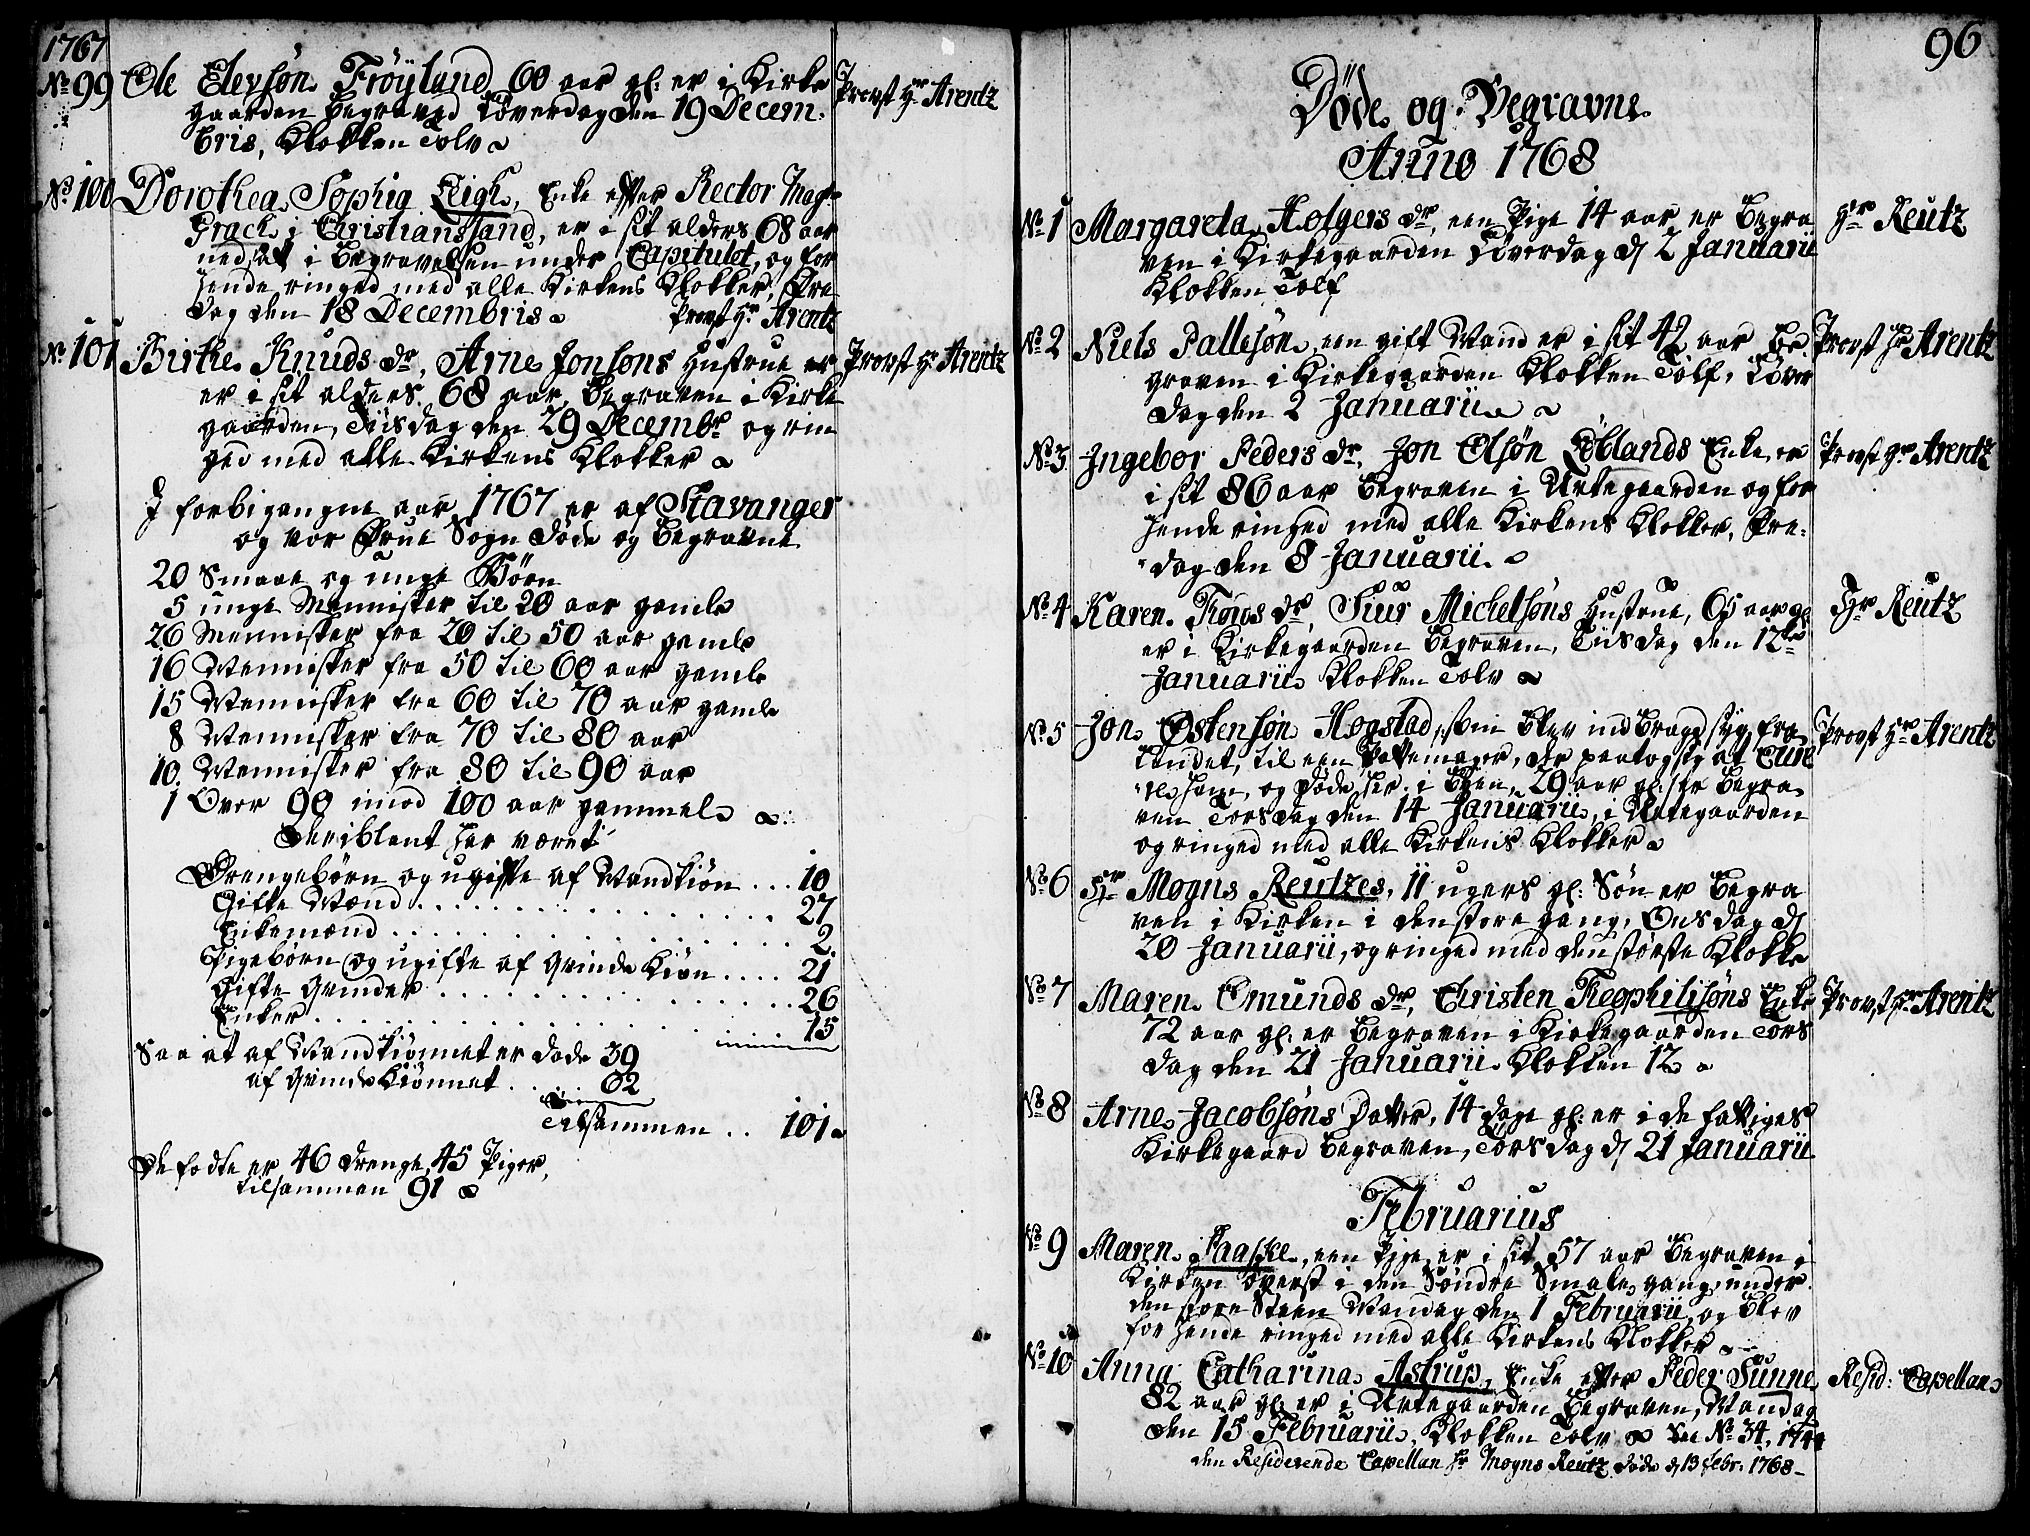 1767
No 99 Ole Elevsøn Frøÿlund 60 aar gl: er i Kirke Provst Hr Arentz
gaarden begraved Löverdag den 19 Decem-
bris, Klokken Tolv
No 100 Dorothea Sophia Leigh, Enke efter Rector Mag:
Grach i Christianssand, er i sit alders 68 aar
nedsat i Begravelsen under Capitulet, og for
hende ringed med alle Kirkens Klokker, Fre-
dag den 18 Decembris. Provst Hr Arentz
No 101 Birthe Knuds dr, Arne Jonsons Hustrue er Provst Hr Arentz
er i sit alders 68 aar, Begraven i Kirke
gaarden, Tiisdag den 29 Decembr og rin
ged med alle Kirkens Klokker
I forbigangne aar 1767 er af Stavanger
og vor Frue Sogn døde og begravne
20 Smaae og unge Börn
5 unge Mennisker til 20 aar gamle
26 Mennisker fra 20 til 50 aar gamle
16 Mennisker fra 50 til 60 aar gamle
15 Mennisker fra 60 til 70 aar gamle
8 Mennisker fra 70 til 80 aar
10. Mennisker fra 80 til 90 aar
1 Over 90 imod 100 aar gammel
Deriblant har været
Drengebörn og ugifte af Mandkiön ... 10
Gifte Mænd ... 27
Enkemænd ... 2
Pigebörn og ugifte af Qvinde Kiön .... 21
Gifte Qvinder ... 26
Enker ... 15
Saa at af Mandkiönnet er døde 39
af Qvinde Kiönnet ... 62
Tilsammen .. 101
De fødte er 46 drenge, 45 Piger,
tilsammen 91
96
Döde og Begravne
Anno 1768
No 1 Margareta Holgers dr, een Pige 14 aar er begra Hr Reutz
ven i Kirkegaarden Löverdag d. 2 Januarii
Klokken Tolf
No 2 Niels Pallesøn, een gift Mand er i sit 42 aar Be- Provst Hr Arentz
graven i Kirkegaarden Klokken Tolf, Löver
dag den 2 Januarii
No 3 Ingebor Peders dr, Jon Olsøn Löblands Enke, er Provst Hr Arentz
i sit 86 aar Begraven i Urtegaarden og for
hende ringed med alle Kirkens Klokker, Fre-
dag den 8 Januarii.
No 4 Karen Tørris dr, Siur Michelsøns Hustrue, 65 aar gl Hr Reutz
er i Kirkegaarden Begraven, Tiisdag den 12te
Januarii Klokken Tolv
No 5 Jon Østensøn Hogstad, som blev indbragt syg fra Provst Hr Arentz
Landet, til een, der paatog sig at Cure
re ham, og døde her i Byen, 29 aar gl: er Begra
ven Torsdag den 14 Januarii, i Urtegaarden
og ringed med alle Kirkens Klokker
No 6 Hr Mogns Reutzes, 11 ugers gl: Søn er Begra
ven i Kirken i den store gang, Onsdag d.
20 Januarii, og ringed med den største Klokke
No 7 Maren Omunds dr, Christen Theophilisøns Enke Provst Hr Arentz
72 aar gl: er Begraven i Kirkegaarden Tors
dag den 21 Januarii Klokken 12
No 8 Arne Jacobsøns Datter, 14 dage gl: er i de fattiges
Kirkegaard Begraven, Torsdag d. 21 Januarii
Februarius
No 9 Maren Paaske, een Pige er i sit 57 aar Begraven i
Kirken överst i den Söndre Smale gang, under
den store Steen Mandag den 1 Februarii, og blev
for hende ringed med alle Kirkens Klokker
No 10 Anna Catharina Astrup, Enke efter Peder Sunne, Resid: Capellan
82 aar gl: er i Urtegaarden Begraven, Mandag
den 15 Februarii, Klokken Tolv See No 34, 1744
den Residerende Capellan Hr Mogns Reutz døde d. 13 Febr. 1768